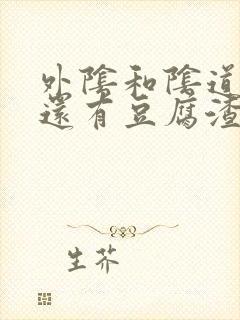 外陰和陰道
還有豆腐渣
生芥